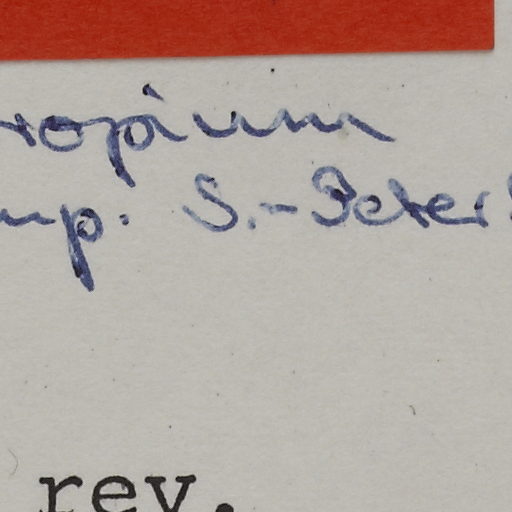 ropium
mp. S.-Peter
rev.